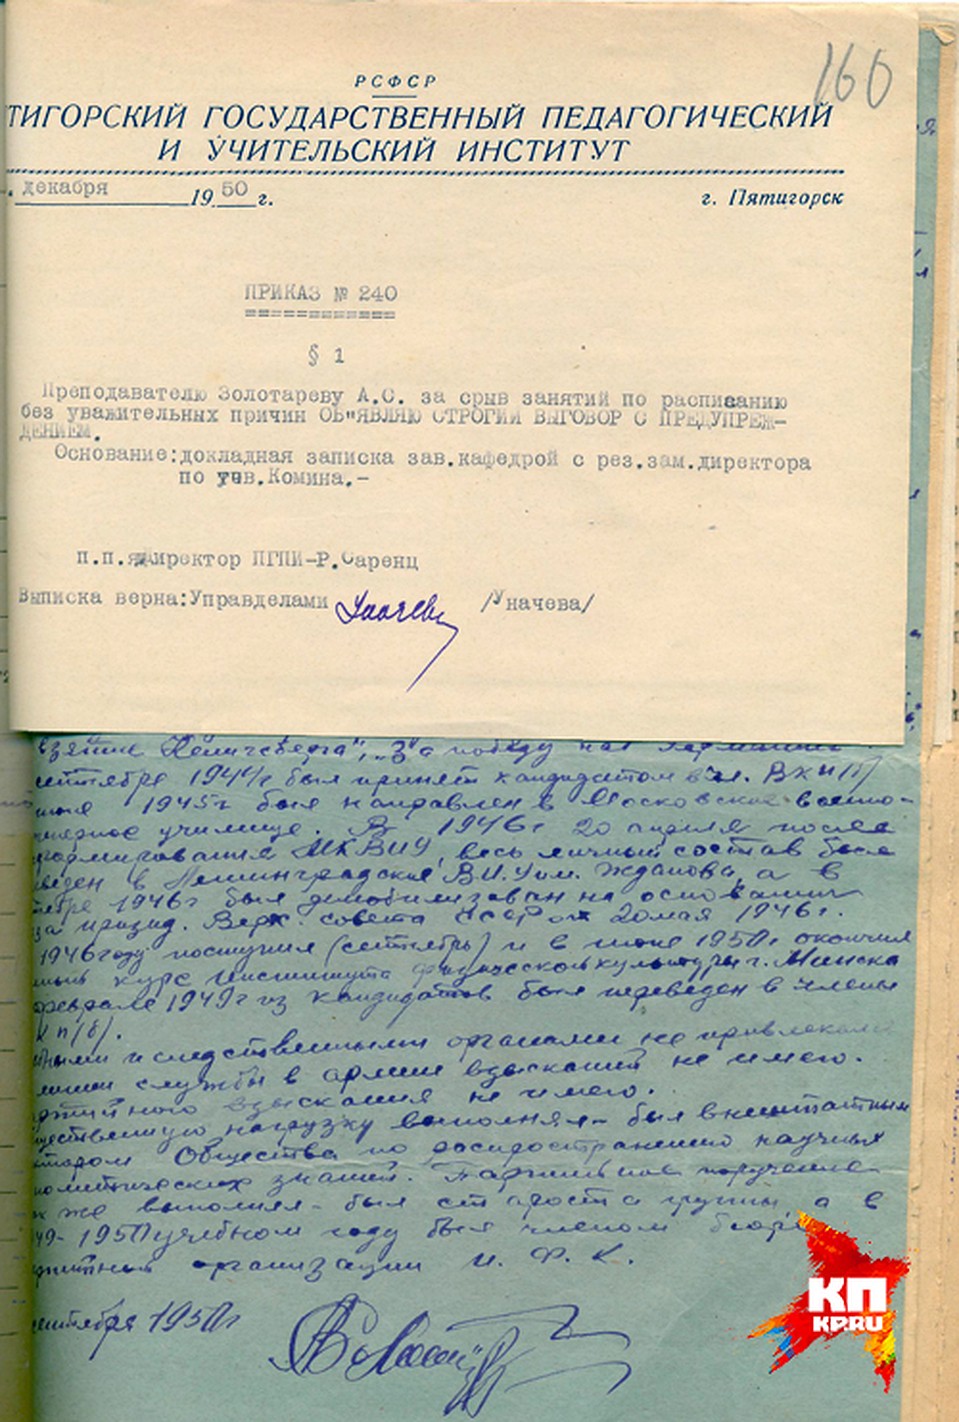 160
РСФСР
ТИГОРСКИЙ ГОСУДАРСТВЕННЫЙ ПЕДАГОГИЧЕСКИЙ
И УЧИТЕЛЬСКИЙ ИНСТИТУТ
декабря 1950 г. г. Пятигорск
ПРИКАЗ № 240
============
§ 1
Преподавателю Золотареву А.С. за срыв занятий по расписанию
без уважительных причин ОБ"ЯВЛЯЮ СТРОГИЙ ВЫГОВОР С ПРЕДУПРЕЖ-
ДЕНИЕМ.
Основание:докладная записка зав.кафедрой с рез.зам.директора
по Комина.-
п.п. директор ПГПИ-Р.Саренц
Выписка верна:Управделами /Уначева/
взятие Кенигсберга", "За победу над Германией
сентябре 1944г был принят кандидатом в чл. ВКП(б)
июня 1945г был направлен в Московское военно-
нерное училище. В 1946г 20 апреля после
формирования МКВИУ, весь личный состав был
веден в Ленинградское В.И.У им. Жданова, а в
тябре 1946г был демобилизован на основании
за презид. Верх. совета СССР от 20 мая 1946г.
1946 году поступил (сентябрь) и в июне 1950г. окончил
курс Института физической культуры г. Минска
феврале 1949г из кандидатов был переведен в члены
КП(б).
ными и следственными органами не привлекался
службы в армии взысканий не имею.
ртийного взыскания не имею.
щественную нагрузку выполнял - был внештатным
ктором Общества по распространению научных
политических знаний. Партийное поручение
к же выполнял - был староста группы, а в
49-1950 учебном году был членом бюро
артийной организации И. Ф. К.
сентября 1950г
КП
KP.RU